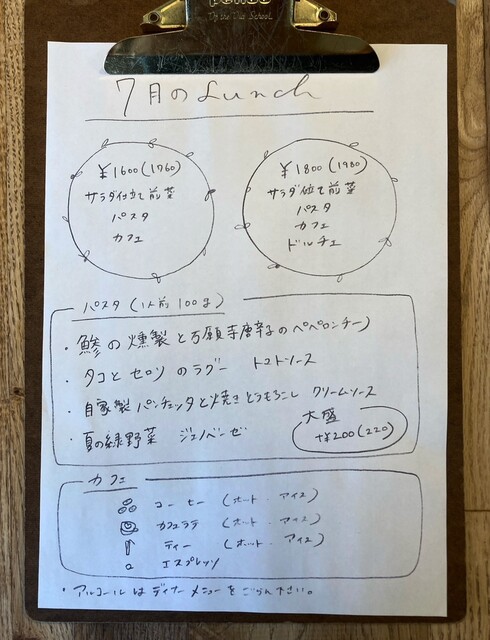 7月のLunch
¥1600(1760)
サラダ仕立て前菜
パスタ
カフェ
¥1800(1980)
サラダ仕立て前菜
パスタ
カフェ
ドルチェ
パスタ(1人前100g)
・鯵の燻製と万願寺唐辛子のペペロンチーノ
・タコとセロリのラグー トマトソース
・自家製パンチェッタと焼きとうもろこし クリームソース
・夏の緑野菜 ジェノベーゼ
大盛
+¥200(220)
カフェ
コーヒー(ホット・アイス)
カフェラテ(ホット・アイス)
ティー(ホット・アイス)
エスプレッソ
・アルコールはディナーメニューをごらん下さい。